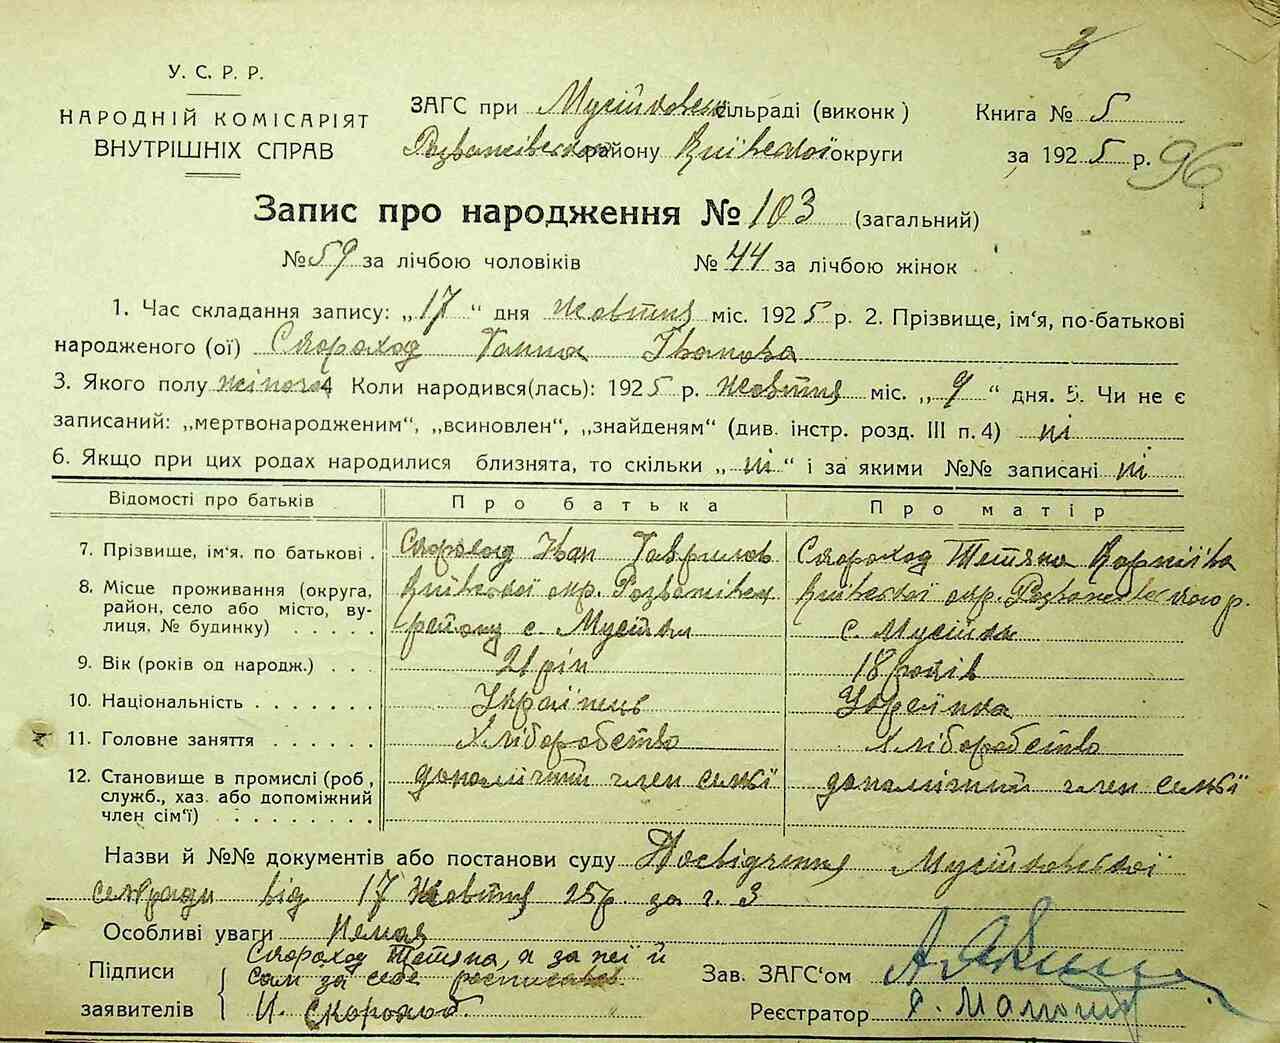 У. С. Р. Р.
НАРОДНІЙ КОМІСАРІЯТ
ВНУТРІШНІХ СПРАВ
ЗАГС при Мусійковськ сільраді (виконк)
району Київської округи
Книга № 5
за 1925 р.
96
Запис про народження № 103 (загальний)
№ 59 за лічбою чоловіків № 44 за лічбою жінок
1. Час складання запису: „17“ дня жовтня міс. 1925 р. 2. Прізвище, ім'я, по-батькові
народженого (ої) Скороход Ганна Іванова
3. Якого полу жіноча 4 Коли народився(лась): 1925 р. жовтня міс. „9“ дня. 5. Чи не є
записаний: „мертвонародженим“, „всиновлен“, „знайденям“ (див. інстр. розд. III п. 4) ні
6. Якщо при цих родах народилися близнята, то скільки „ні“ і за якими №№ записані ні
Відомості про батьків Про батька Про матір
7. Прізвище, ім'я, по батькові . Скороход Іван Гаврилов Скороход Тетяна Карпіївна
8. Місце проживання (округа, район, село або місто, вулиця, № будинку) . . . . . Київської окр. району с. Мусійки Київської окр. р. с. Мусійки
9. Вік (років од народж.) . . . 21 рік 18 років
10. Національність . . . . . . . Українець Українка
11. Головне заняття . . . . . . Хліборобство Хліборобство
12. Становище в промислі (роб, служб., хаз. або допоміжний член сім'ї) . . . . . . . . член семьї член семьї
Назви й №№ документів або постанови суду Посвідчення Мусійковської
сельради від 17 жовтня 25р. за ч. 3
Особливі уваги Немає
Підписи заявителів Скороход Тетяна, а за неї й
сам за себе росписався
И. Скороход.
Зав. ЗАГС'ом
Реєстратор